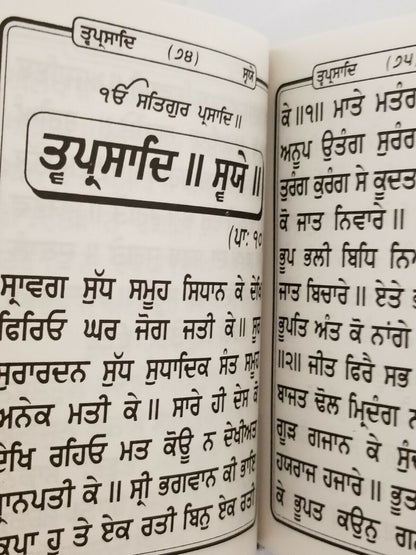 ਤ੍ਵਪ੍ਰਸਾਦਿ (੭੪) ਸ੍ਵਯੇ
ੴ ਸਤਿਗੁਰ ਪ੍ਰਸਾਦਿ॥
ਤ੍ਵਪ੍ਰਸਾਦਿ ॥ ਸ੍ਵਯੇ ॥
(ਪਾ: ੧੦
ਸ੍ਰਾਵਗ ਸੁੱਧ ਸਮੂਹ ਸਿਧਾਨ ਕੇ ਦੇਖਿ
ਫਿਰਿਓ ਘਰ ਜੋਗ ਜਤੀ ਕੇ॥ ਸੂਰ
ਸੁਰਾਰਦਨ ਸੁੱਧ ਸੁਧਾਦਿਕ ਸੰਤ ਸਮੂਹ
ਅਨੇਕ ਮਤੀ ਕੇ॥ ਸਾਰੇ ਹੀ ਦੇਸ ਕੋ
ਦੇਖਿ ਰਹਿਓ ਮਤ ਕੋਊ ਨ ਦੇਖੀਅਤ
ਪ੍ਰਾਨਪਤੀ ਕੇ॥ ਸ੍ਰੀ ਭਗਵਾਨ ਕੀ ਭਾਇ
ਕ੍ਰਿਪਾ ਹੂ ਤੇ ਏਕ ਰਤੀ ਬਿਨੁ ਏਕ ਰਤੀ
ਤ੍ਵਪ੍ਰਸਾਦਿ (੭੫)
ਕੇ॥੧॥ ਮਾਤੇ ਮਤੰਗ
ਅਨੂਪ ਉਤੰਗ ਸੁਰੰਗ
ਤੁਰੰਗ ਕੁਰੰਗ ਸੇ ਕੂਦਤ
ਕੋ ਜਾਤ ਨਿਵਾਰੇ॥
ਭੂਪ ਭਲੀ ਬਿਧਿ
ਜਾਤ ਬਿਚਾਰੇ॥ ਏਤੇ
ਭੂਪਤਿ ਅੰਤ ਕੋ ਨਾਂਗੇ
॥੨॥ ਜੀਤ ਫਿਰੈ ਸਭ
ਬਾਜਤ ਢੋਲ ਮ੍ਰਿਦੰਗ
ਗੂੜ ਗਜਾਨ ਕੇ
ਹਯਰਾਜ ਹਜਾਰੇ॥
ਕੇ ਭੂਪਤ ਕਉਨੁ